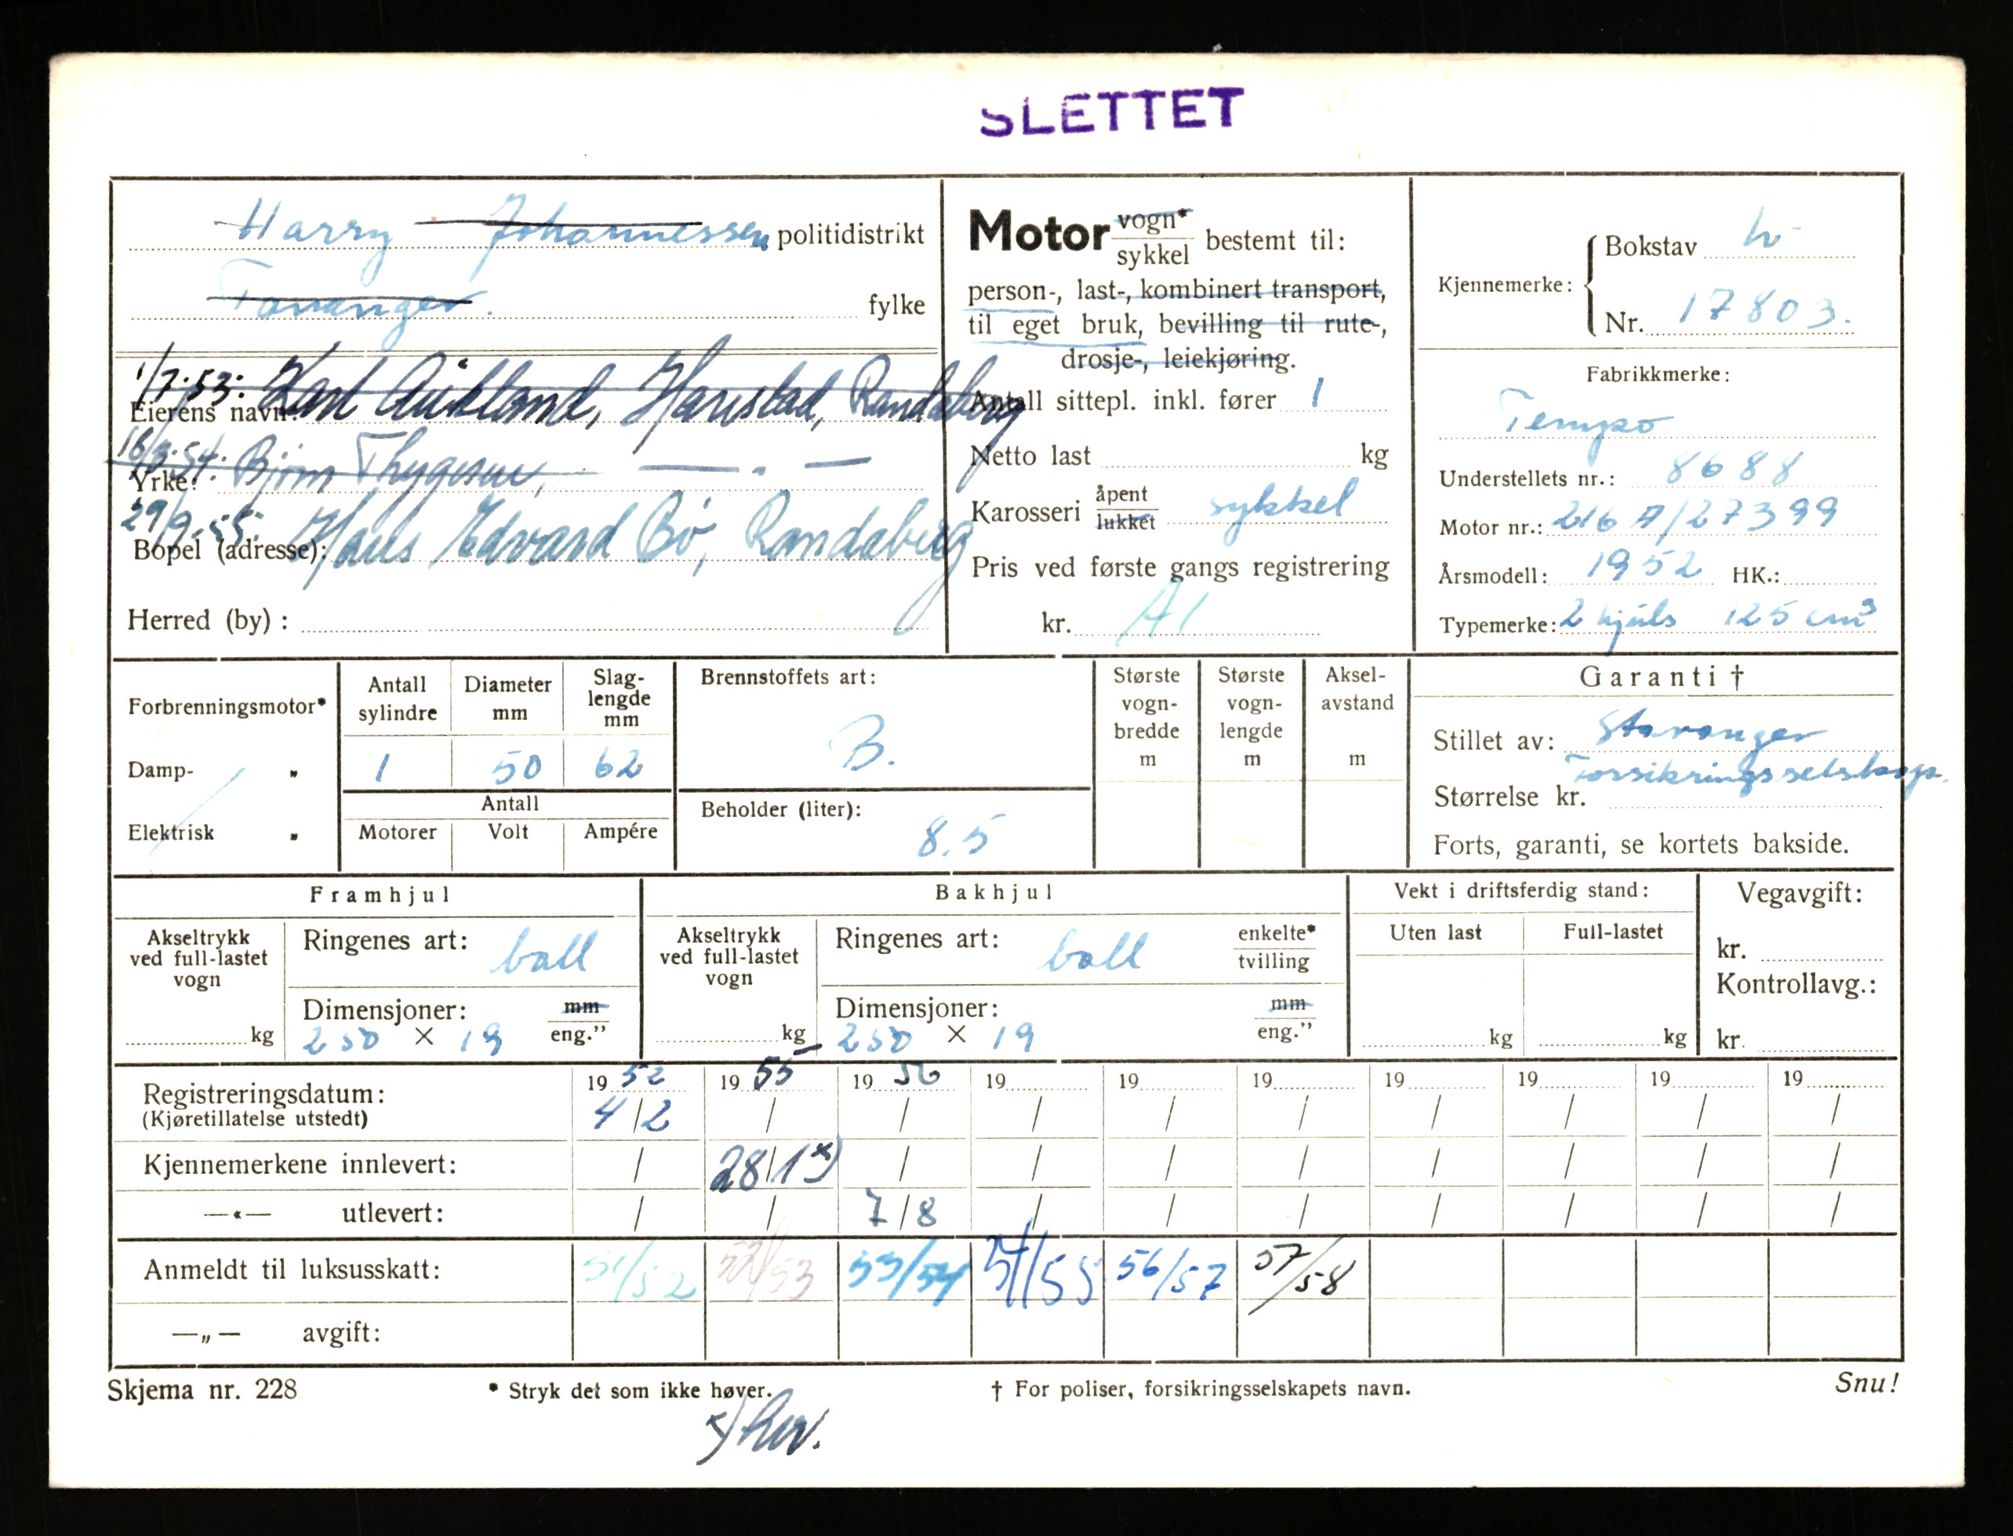 SLETTET
Harry Johannessen politidistrikt
Tananger. fylke
1/7.53: Karl Aukland, Harestad, Randaberg
Eierens navn:
16/3.54. Bjørn Thygesen, — " —
Yrke:
29/9-55. Hans Edvard Bø, Randaberg
Bopel (adresse):
Herred (by) :
Motor vogn*
sykkel bestemt til:
person-, last-, kombinert transport,
til eget bruk, bevilling til rute-,
drosje-, leiekjøring.
Antall sittepl. inkl. fører 1
Netto last kg
Karosseri åpent
lukket sykkel
Pris ved første gangs registrering
kr. A1
Kjennemerke: Bokstav
Nr. 17803.
Fabrikkmerke:
Tempo
Understellets nr.: 8688
Motor nr.: 216 A/27399
Årsmodell: 1952 HK.:
Typemerke: 2 hjuls 125 cm³
Forbrenningsmotor*
Damp- "
Elektrisk "
Antall sylindre Diameter mm Slaglengde mm
1 50 62
Antall
Motorer Volt Ampére
Brennstoffets art:
B.
Beholder (liter):
8.5
Største vognbredde m
Største vognlengde m
Akselavstand m
Garanti †
Stillet av: Stavanger
Forsikringsselskap.
Størrelse kr.
Forts, garanti, se kortets bakside.
Framhjul
Akseltrykk ved full-lastet vogn
kg
Ringenes art: ball
Dimensjoner: mm
250 × 19 eng."
Bakhjul
Akseltrykk ved full-lastet vogn
kg
Ringenes art: ball enkelte*
tvilling
Dimensjoner: mm
250 × 19 eng."
Vekt i driftsferdig stand:
Uten last Full-lastet
kg kg
Vegavgift:
kr.
Kontrollavg.:
kr.
Registreringsdatum: 1952 1955 1956 19 19 19 19 19 19 19
(Kjøretillatelse utstedt) 4/2 / / / / / / / / /
Kjennemerkene innlevert: / 28/1 x) / / / / / / / /
—«— utlevert: / / 7/8 / / / / / / /
Anmeldt til luksusskatt: 51/52 52/53 53/54 54/55 56/57 57/58
—„— avgift:
Skjema nr. 228 * Stryk det som ikke høver. † For poliser, forsikringsselskapets navn. Snu!